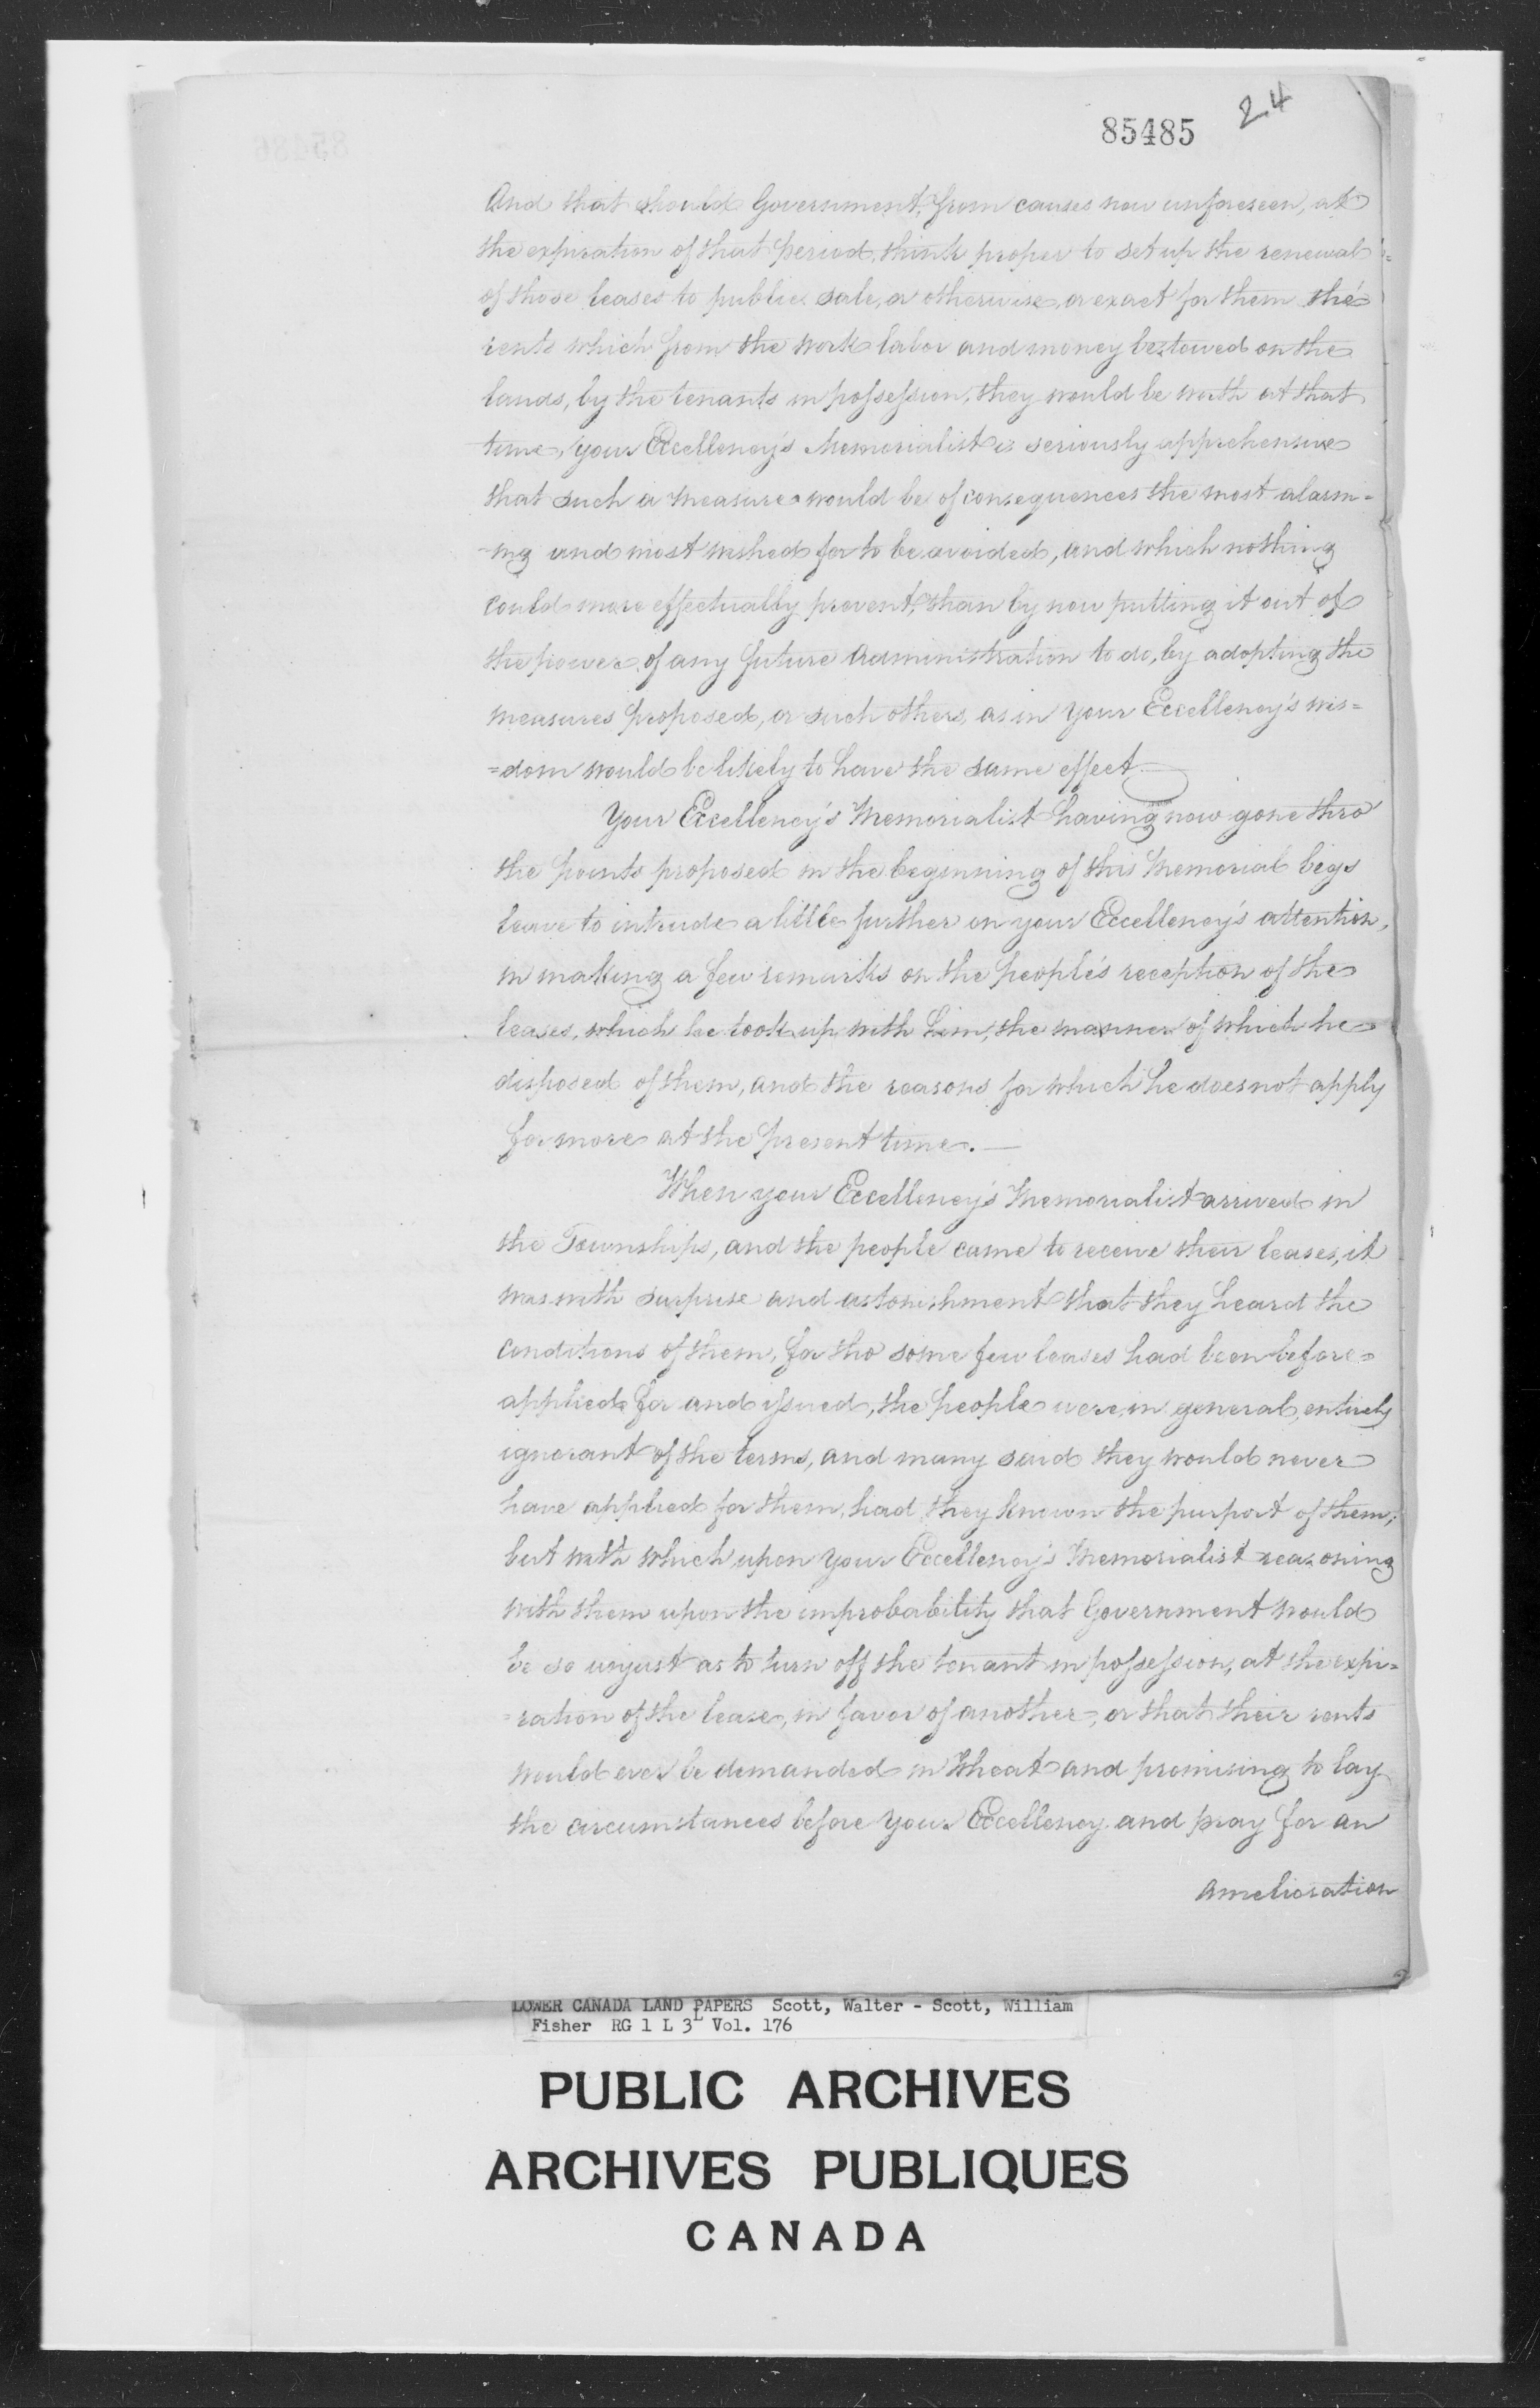 24
85485
And that should Government, from causes now unforeseen, at
the expiration of that period, think proper to set up the renewal
of those leases to public sale, or otherwise, or exact for them the
rents which from the work labor and money bestowed on the
lands, by the tenants in possession, they would be worth at that
time, your Excellency's Memorialist is seriously apprehensive
that such a measure would be of consequences the most alarm=
=ing and most wished for to be avoided, and which nothing
could more effectually prevent, than by now putting it out of
the power of any future Administration to do, by adopting the
measures proposed, or such others, as in Your Excellency's wis=
=dom would be likely to have the same effect.—
Your Excellency's Memorialist having now gone thro'
the points proposed in the beginning of this Memorial begs
leave to intrude a little further on your Excellency's attention,
in making a few remarks on the people's reception of the
leases, which he took up with him, the manner of which he
disposed of them, and the reasons for which he does not apply
for more at the present time.—
When your Excellency's Memorialist arrived in
the Townships, and the people came to receive their leases, it
was with surprise and astonishment that they heard the
conditions of them, for tho some few leases had been before=
applied for and issued, the people were, in general, entirely
ignorant of the terms, and many said they would never
have applied for them, had they known the purport of them;
but with which upon your Excellency's Memorialist reasoning
with them upon the improbability that Government would
be so unjust as to turn off the tenant in possession, at the expi=
=ration of the lease, in favor of another, or that their rents
would ever be demanded in Wheat and promising to lay
the circumstances before Your Excellency and pray for an
Amelioration
LOWER CANADA LAND PAPERS Scott, Walter - Scott, William
Fisher RG 1 L 3L Vol. 176
PUBLIC ARCHIVES
ARCHIVES PUBLIQUES
CANADA